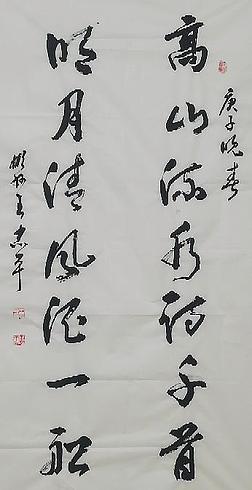 庚子晚春
高山流水诗千首
明月清风酒一船
王志平